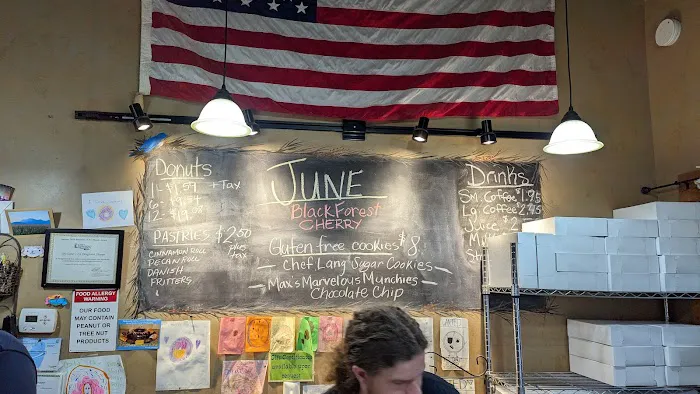 Donuts
1-$1.91 + Tax
6-
12-
PASTRIES $2.50
plus
tax
CINNAMON ROLL
PECAN ROLL
DANISH
FRITTERS
JUNE
BLACK FOREST
CHERRY
Gluten free cookies $8
— Chef Lang Sugar Cookies —
— Max's Marvelous Munchies —
Chocolate Chip
Drinks
Sm. Coffee $1.95
Lg. Coffee 2.45
Juice $2
FOOD ALLERGY
WARNING
OUR FOOD
MAY CONTAIN
PEANUT OR
TREE NUT
PRODUCTS